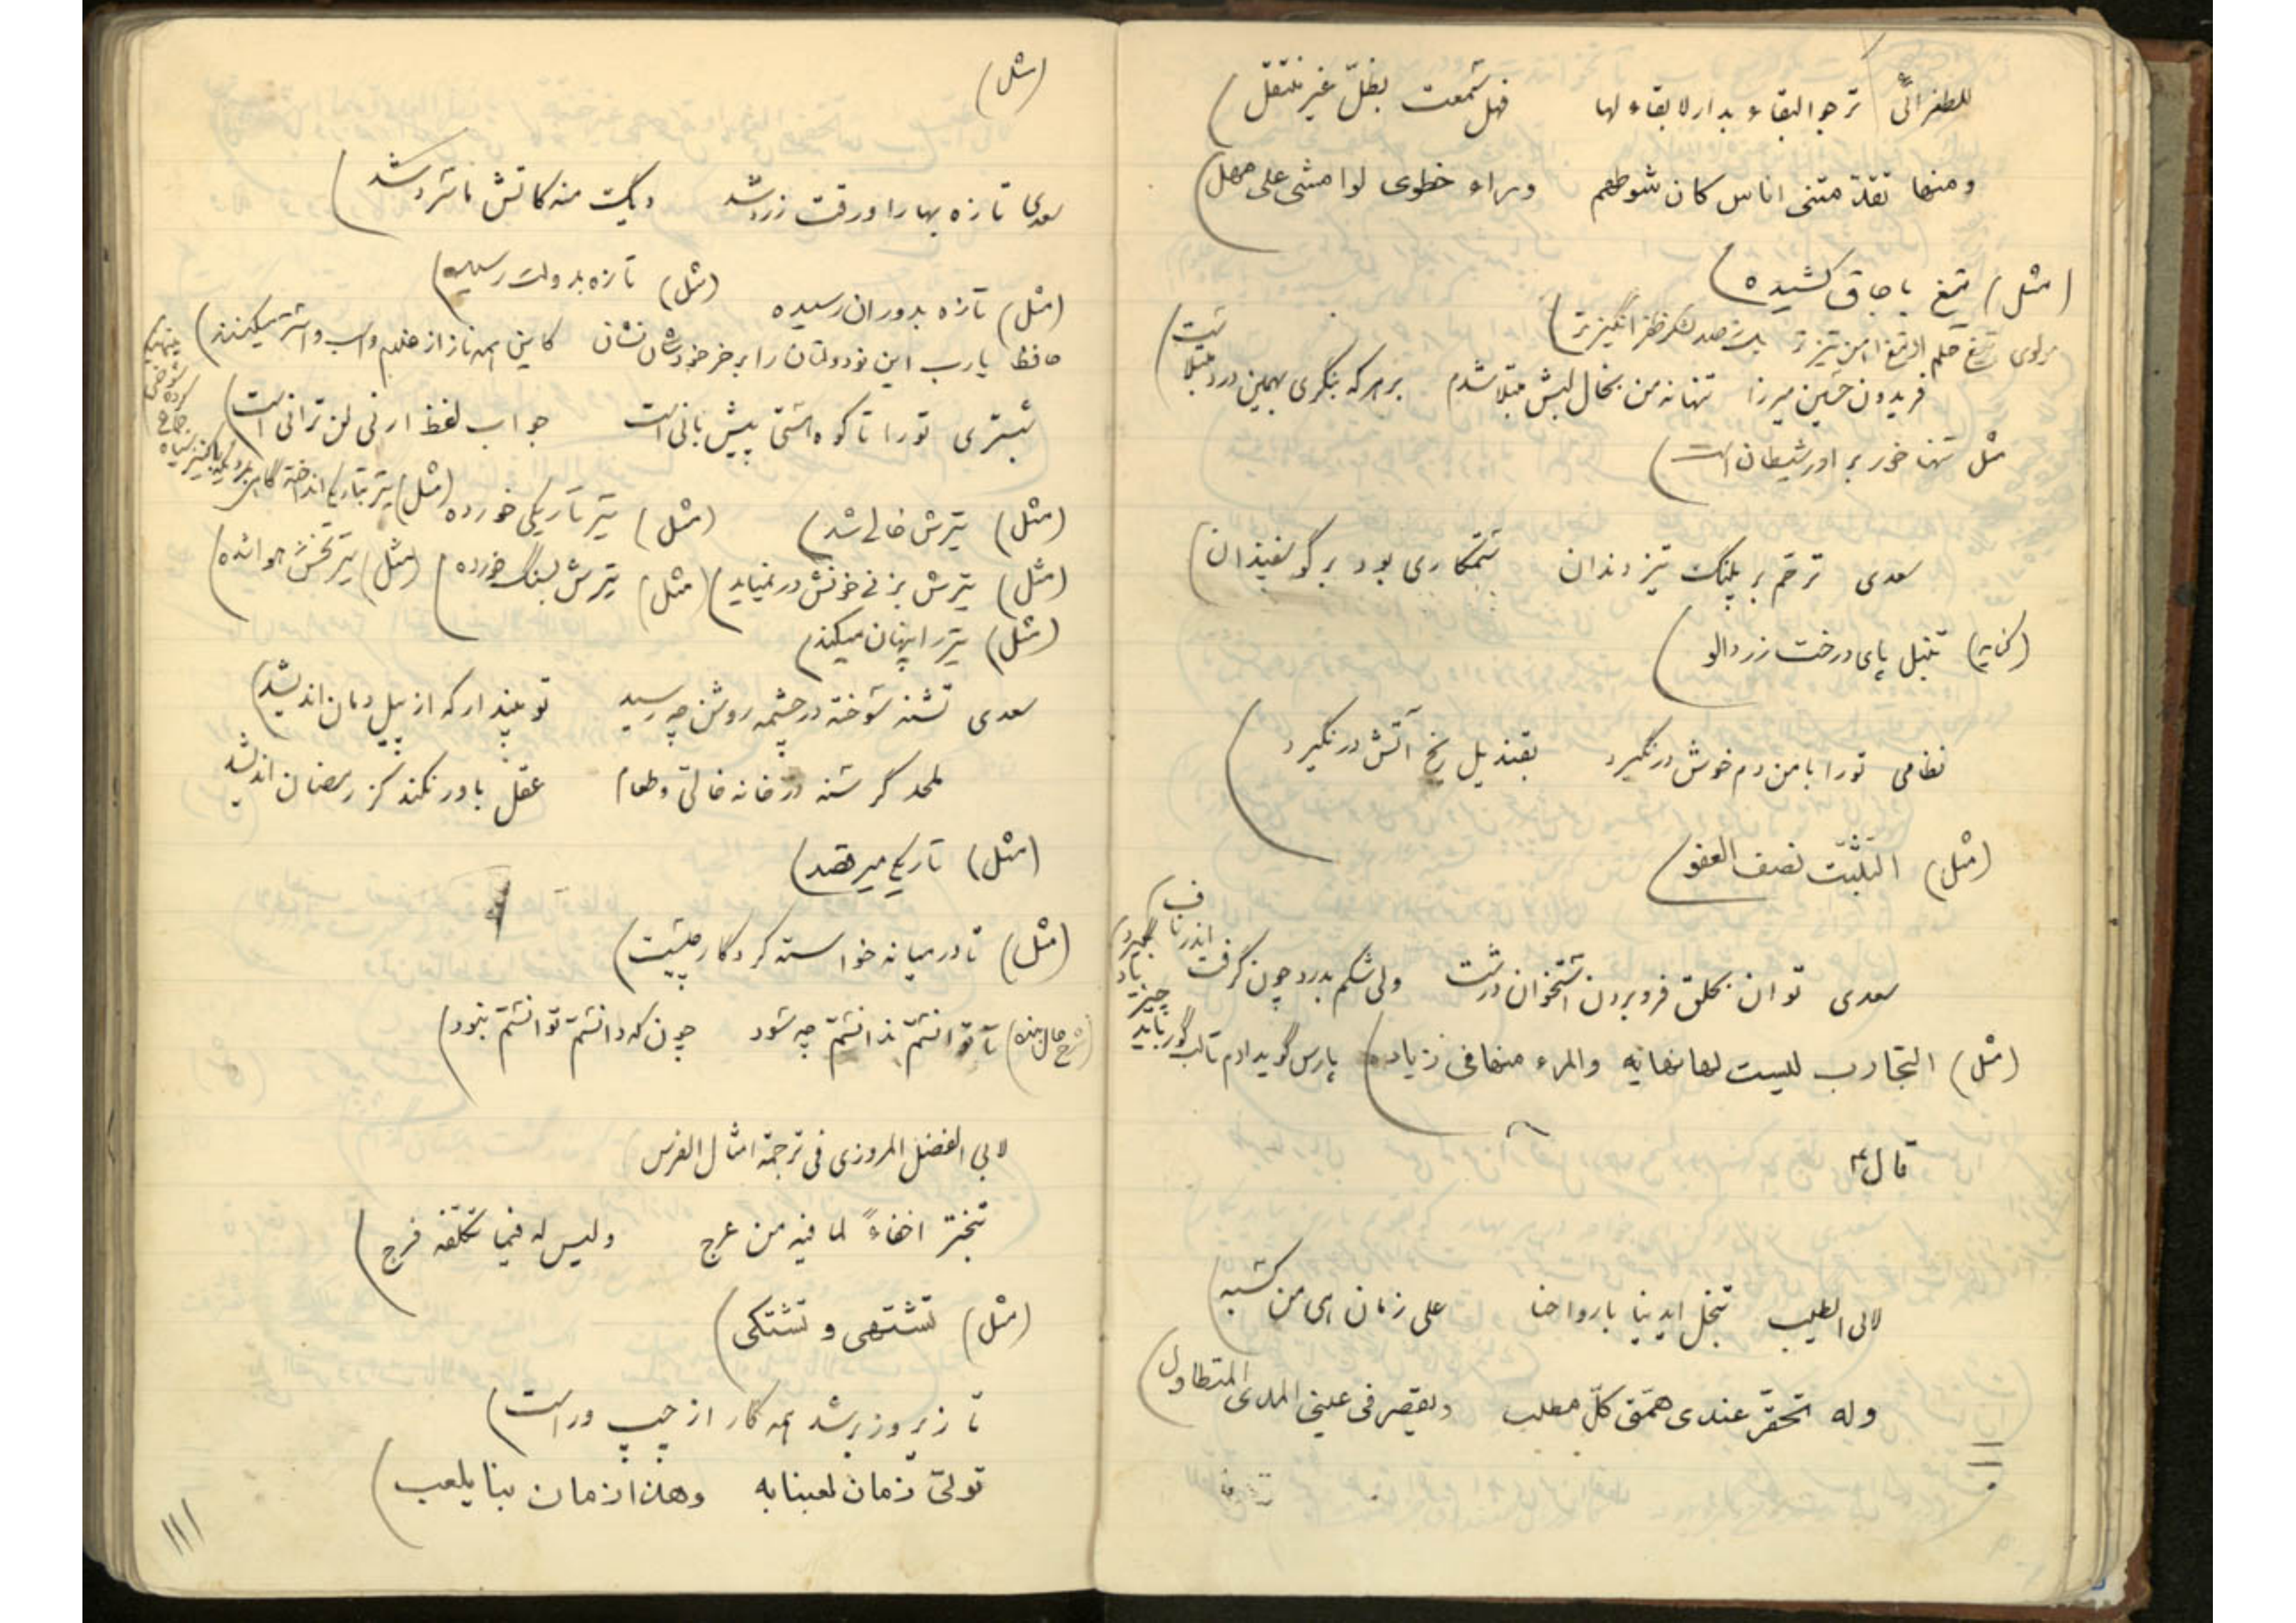 للطغرائیّ ترجو البقاء بدار لا بقاء لها فهل سمعت بظلّ غیر منتقل
ومنها تقدّمتنی اناس کان شوطهم وراء خطوی لو امشی علی مهل
(مثل) تیغ باجاق کشیده
مولوی تیغ حلم از تیغ آهن تیزتر بل ز صد لشکر ظفر انگیزتر
فریدون حسین میرزا تنها نه من بخال لبش مبتلا شدم بر هر که بنگری بهمین درد مبتلا است
مثل تنها خور برادر شیطان است
سعدی ترحّم بر پلنک تیز دندان ستمکاری بود بر گوسفندان
(کنایه) تنبل پای درخت زردالو
نظامی تورا با من دم خوش در نگیرد بقندیل یخ آتش در نگیرد
(مثل) التثبّت نصف العفو
سعدی توان بحلق فرو بردن استخوان درشت ولی شکم بدرد چون گرفت اندر ناف
(مثل) التجارب لیست لها نهایه والمرء منها فی زیاده پارس گوید ادم تا لب گور باید چیز یاد بگیرد
قال
لابی الطیب تبخل ایدینا بارواحنا علی زمان هی من کسبه
وله تحقّر عندی همّتی کلّ مطلب ویقصر فی عینی المدی المتطاول
(مثل)
سعدی تازه بهارا ورقت زرد شد دیگ منه کاتش ما سرد شد
(مثل) تازه بدوران رسیده (مثل) تازه بدولت رسیده
حافظ یارب این نودولتان را بر خر خودشان نشان کاین همه ناز از غلام واسب و استر میکنند
شبستری تورا تا کوه هستی پیش باقی است جواب لفظ ارنی لن ترانی است
(مثل) تیرش خالی شد (مثل) تیر تاریکی خورده (مثل) تیر بتاریکی انداخته
(مثل) تیرش بزنی خونش در نمیاید (مثل) تیرش بسنگ خورده (مثل) تیر تخش هوا شده
(مثل) تیر را پنهان میکند
سعدی تشنه سوخته در چشمه روشن چه رسید تو مپندار که از پیل دمان اندیشد
ملحد گرسنه در خانه خالی و طعام عقل باور نکند کز رمضان اندیشد
(مثل) تاریکی میرقصد
(مثل) تا درمیانه خواسته کردگار چیست
(شرح حال بنده) تا توانستم ندانستم چه سود چون که دانستم توانستم نبود
لابی الفضل المروزی فی ترجمة امثال الفرس
تبختر اخفاءً لما فیه من عرج ولیس له فیما تکلّفه فرج
(مثل) تشتهی و تشتکی
تا زیر و زبر شد همه کار از چپ وراست
تولّی زمان لعبنا به وهذا زمان بنا یلعب
۱۱۱